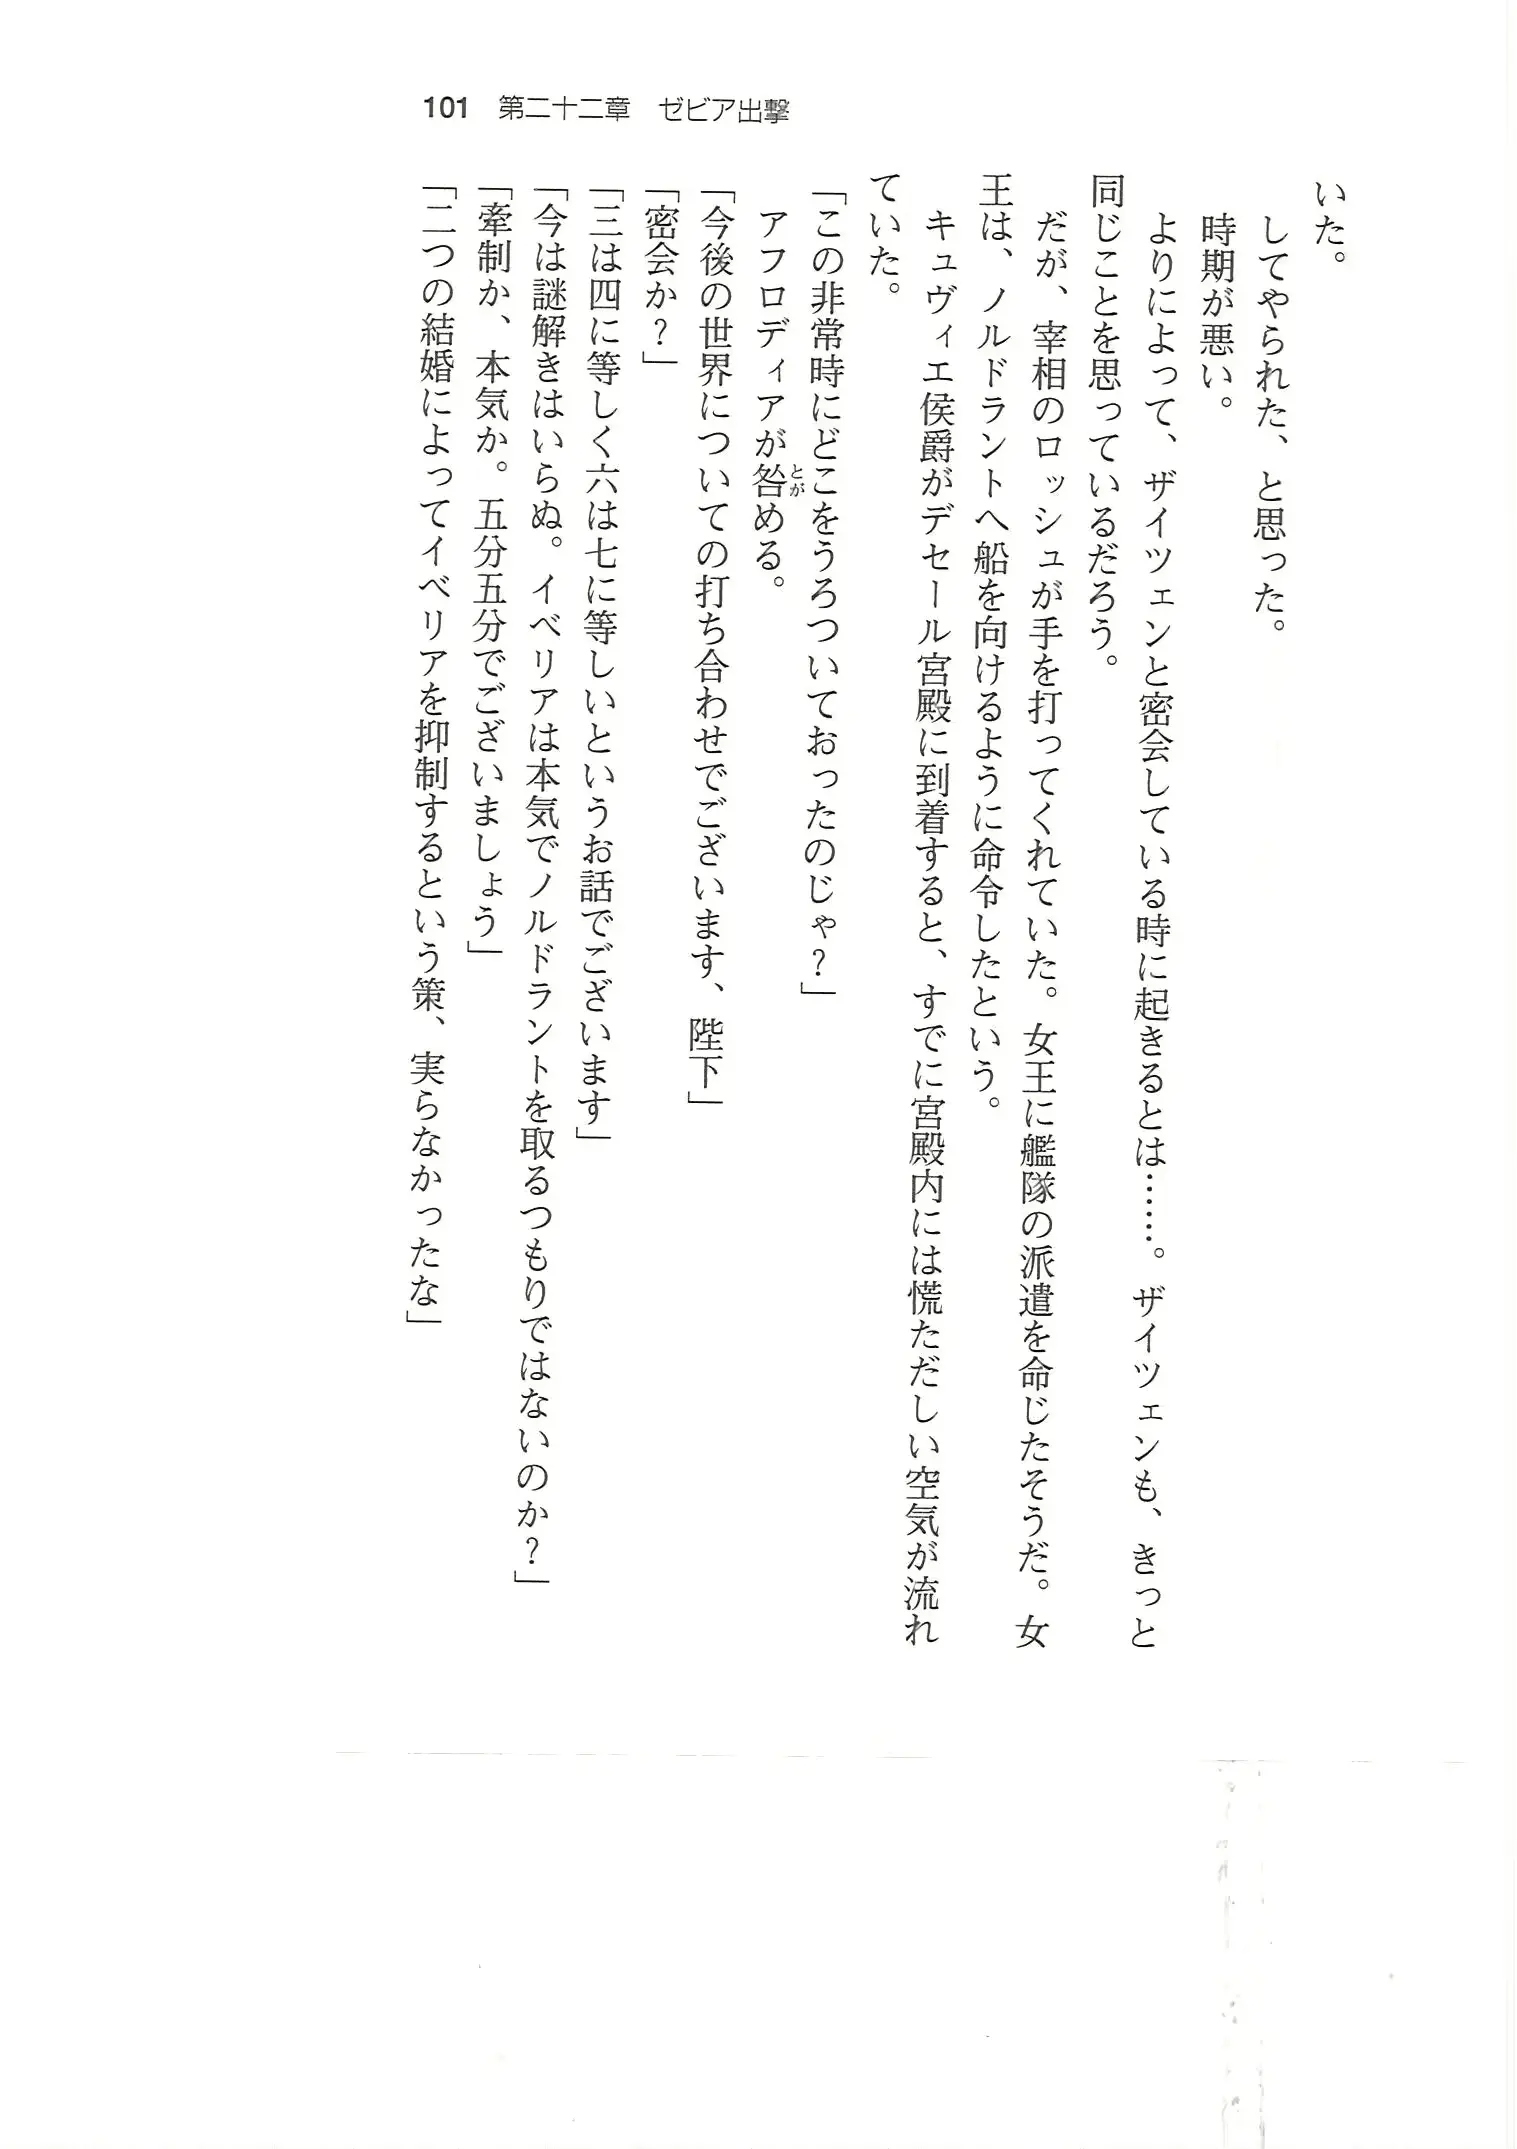 101 第二十二章 ゼビア出撃
いた。
　してやられた、と思った。
　時期が悪い。
　よりによって、ザイツェンと密会している時に起きるとは……。ザイツェンも、きっと
同じことを思っているだろう。
　だが、宰相のロッシュが手を打ってくれていた。女王に艦隊の派遣を命じたそうだ。女
王は、ノルドラントへ船を向けるように命令したという。
　キュヴィエ侯爵がデセール宮殿に到着すると、すでに宮殿内には慌ただしい空気が流れ
ていた。
「この非常時にどこをうろついておったのじゃ？」
　アフロディアが咎とがめる。
「今後の世界についての打ち合わせでございます、陛下」
「密会か？」
「三は四に等しく六は七に等しいというお話でございます」
「今は謎解きはいらぬ。イベリアは本気でノルドラントを取るつもりではないのか？」
「牽制か、本気か。五分五分でございましょう」
「二つの結婚によってイベリアを抑制するという策、実らなかったな」